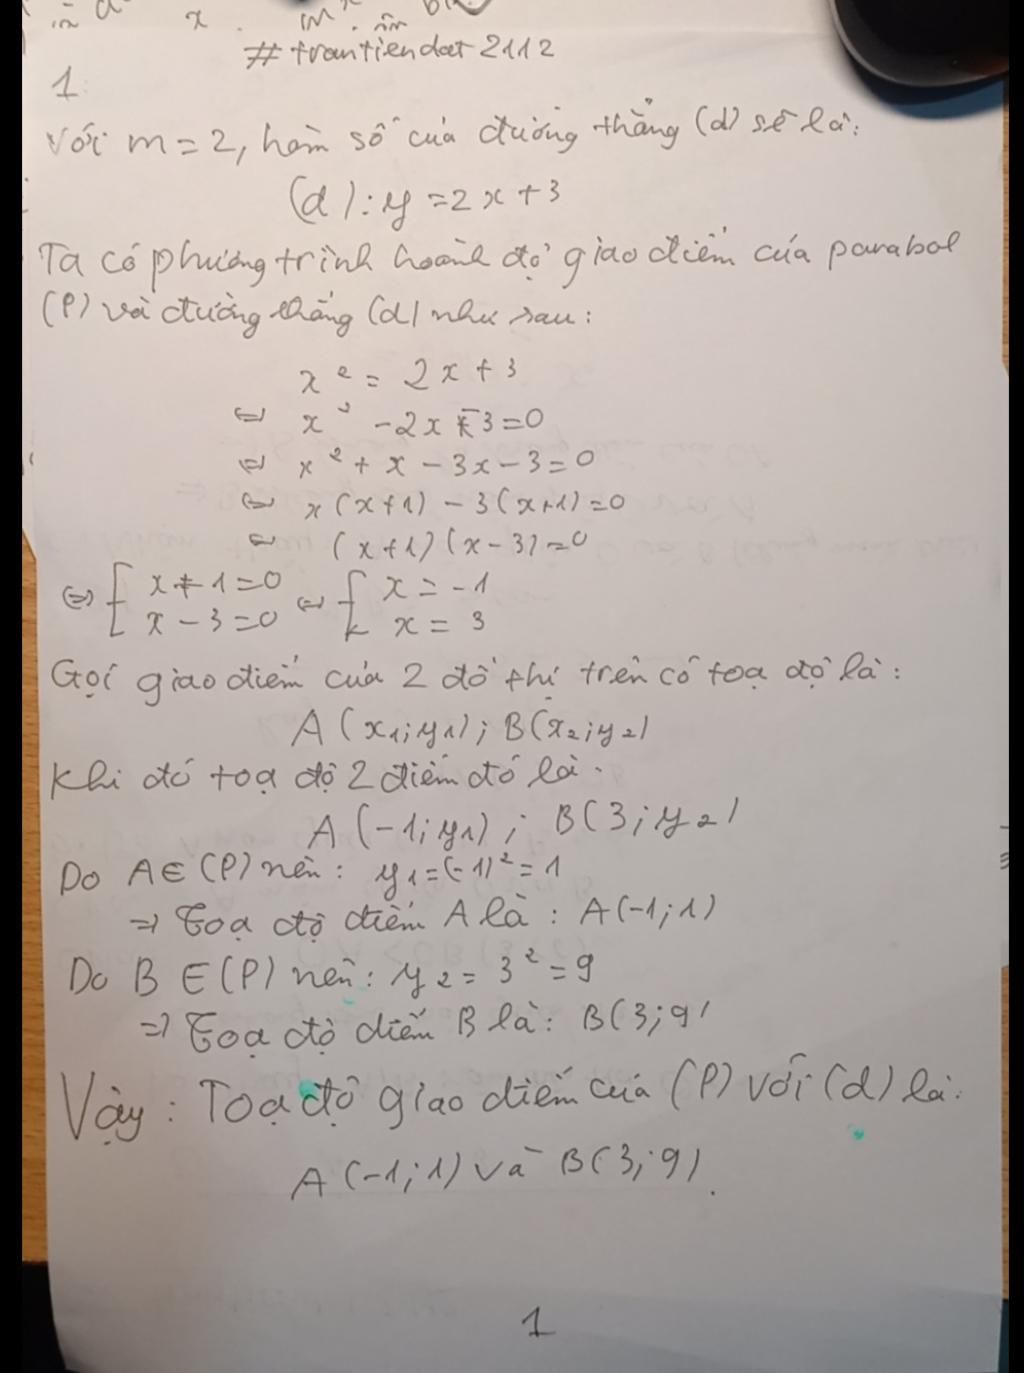 #trantiendat2112
1
Với m = 2, hàm số của đường thẳng (d) sẽ là:
(d): y = 2x + 3
Ta có phương trình hoành độ giao điểm của parabol
(P) và đường thẳng (d) như sau:
x² = 2x + 3
⇔ x² - 2x - 3 = 0
⇔ x² + x - 3x - 3 = 0
⇔ x(x+1) - 3(x+1) = 0
⇔ (x+1)(x-3) = 0
⇔ [ x + 1 = 0 ⇔ [ x = -1
x - 3 = 0 x = 3
Gọi giao điểm của 2 đồ thị trên có toạ độ là:
A(x₁; y₁); B(x₂; y₂)
Khi đó toạ độ 2 điểm đó là:
A(-1; y₁); B(3; y₂)
Do A ∈ (P) nên: y₁ = (-1)² = 1
⇒ Toạ độ điểm A là: A(-1; 1)
Do B ∈ (P) nên: y₂ = 3² = 9
⇒ Toạ độ điểm B là: B(3; 9)
Vậy: Toạ độ giao điểm của (P) với (d) là:
A(-1; 1) và B(3; 9).
1